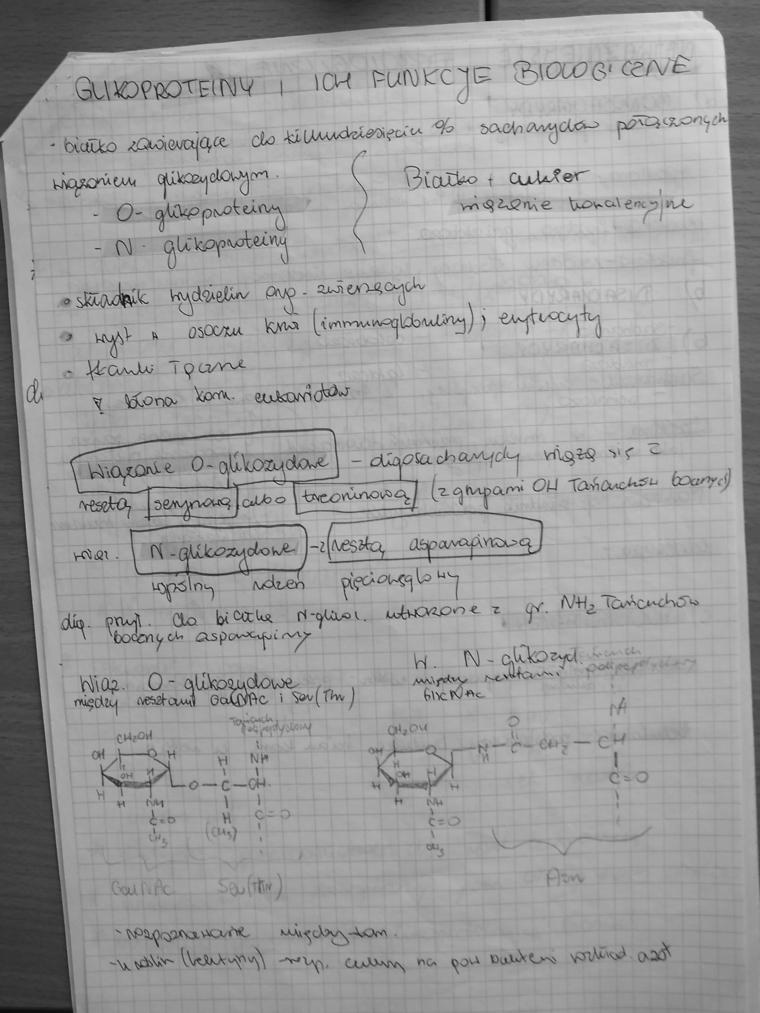 GLIKOPROTEINY I ICH FUNKCJE BIOLOGICZNE
- białko zawierające do kilkudziesięciu % sacharydów połączonych
wiązaniem glikozydowym.
- O- glikoproteiny
- N- glikoproteiny
Białko + cukier
wiązanie kowalencyjne
• składnik wydzielin org. zwierzęcych
• wyst w osoczu krwi (immunoglobuliny); erytrocyty
• tkanki łączne
błona kom. eukariotów
Wiązanie O-glikozydowe - oligosacharydy wiążą się z
resztą serynową albo treoninową (z grupami OH łańcuchów bocznych)
wiąz. N-glikozydowe - z resztą asparaginową
wspólny rdzeń pięciowęglowy
olig. przył. do białka N-glikoz. utworzone z gr. NH2 łańcuchów
bocznych asparaginy
Wiąz. O-glikozydowe
między resztami GalNAc i Ser(Thr)
W. N-glikozyd.
między resztami
GlcNAc
łańcuch
polipeptydowy
łańcuch
polipeptydowy
CH2OH
OH
O
H
OH
H
H
H
NH
C=O
CH3
O
H
C
H
(CH3)
NH
CH
C=O
GalNAc
Ser(Thr)
CH2OH
OH
O
OH
H
H
H
NH
C=O
CH3
N
H
O
C
CH2
CH
NH
C=O
Asn
- rozpoznawanie między kom.
- u roślin (lektyny) - rozp. cukry na pow bakterii rozkład. azot